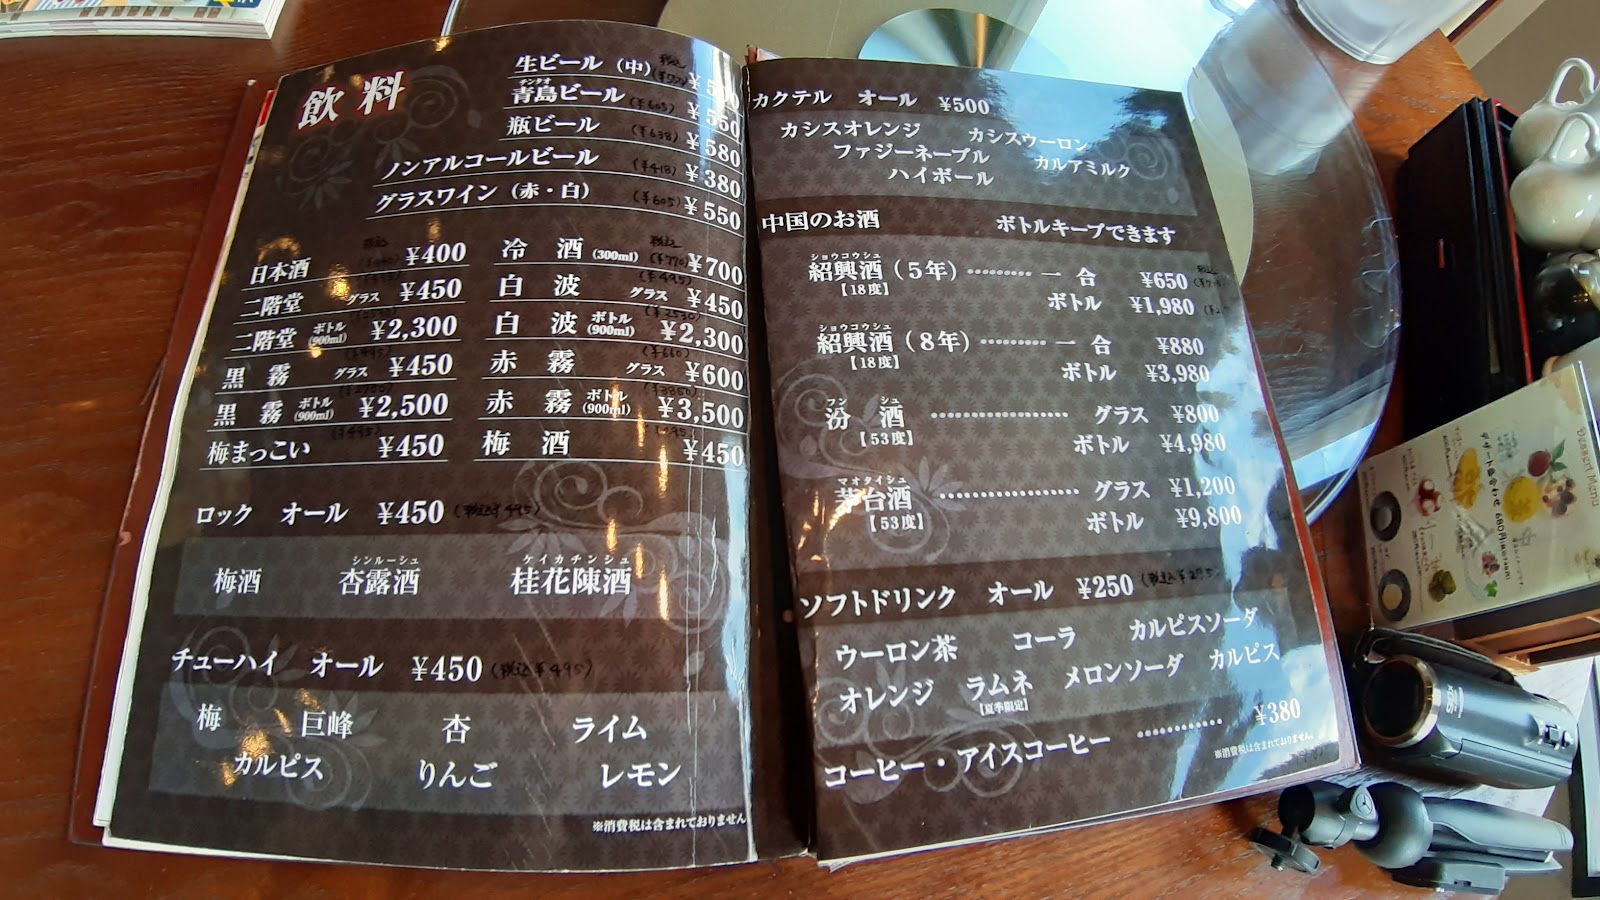 飲料
生ビール（中） 税込
青島ビール チンタオ (¥605) ¥550
瓶ビール (¥638) ¥580
ノンアルコールビール (¥418) ¥380
グラスワイン（赤・白） (¥605) ¥550
日本酒 税込 ¥400
二階堂 グラス ¥450
二階堂 ボトル (900ml) ¥2,300
黒霧 グラス ¥450
黒霧 ボトル (900ml) ¥2,500
梅まっこい ¥450
冷酒 (300ml) 税込 (¥770) ¥700
白波 グラス (¥495) ¥450
白波 ボトル (900ml) (¥2530) ¥2,300
赤霧 グラス (¥660) ¥600
赤霧 ボトル (900ml) (¥3850) ¥3,500
梅酒 ¥450
ロック オール ¥450 (税込¥495)
梅酒 杏露酒 シンルーシュ 桂花陳酒 ケイカチンシュ
チューハイ オール ¥450 (税込¥495)
梅 巨峰 杏 ライム
カルピス りんご レモン
※消費税は含まれておりません
カクテル オール ¥500
カシスオレンジ カシスウーロン
ファジーネーブル カルアミルク
ハイボール
中国のお酒 ボトルキープできます
紹興酒（5年） ショウコウシュ 【18度】 ……… 一合 ¥650
ボトル ¥1,980
紹興酒（8年） ショウコウシュ 【18度】 ……… 一合 ¥880
ボトル ¥3,980
汾酒 フンシュ 【53度】 ……… グラス ¥800
ボトル ¥4,980
茅台酒 マオタイシュ 【53度】 ……… グラス ¥1,200
ボトル ¥9,800
ソフトドリンク オール ¥250
ウーロン茶 コーラ カルピスソーダ
オレンジ ラムネ 【夏季限定】 メロンソーダ カルピス
コーヒー・アイスコーヒー ……… ¥380
※消費税は含まれておりません。
Dessert Menu
デザート盛合わせ 680円